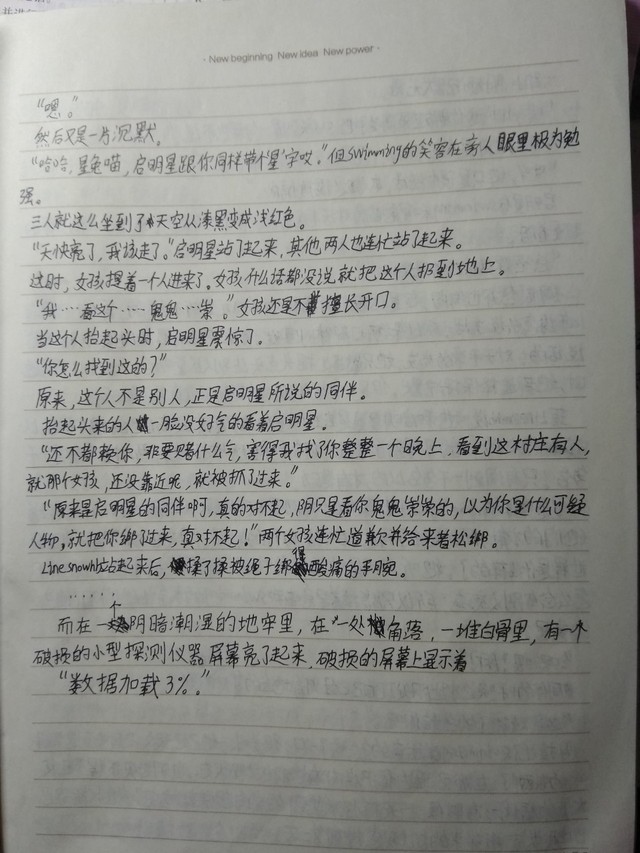 - New beginning New idea New power -
“嗯。”
然后又是一片沉默。
“哈哈,星兔喵,启明星跟你同样带个‘星’字哎。”但swimming的笑容在旁人眼里极为勉
强。
三人就这么坐到了天空从漆黑变成浅红色。
“天快亮了,我该走了。”启明星站了起来,其他两人也连忙站了起来。
这时,女孩提着一个人进来了。女孩什么话都没说就把这个人扔到地上。
“我……看这个……鬼鬼…祟。”女孩还是不擅长开口。
当这个人抬起头时,启明星震惊了。
“你怎么找到这的?”
原来,这个人不是别人,正是启明星所说的同伴。
抬起头来的人一脸没好气的看着启明星。
“还不都赖你,非要赌什么气,害得我找了你整整一个晚上,看到这村庄有人,
就那个女孩,还没靠近呢,就被抓了过来。”
“原来是启明星的同伴啊,真的对不起,阴只是看你鬼鬼祟祟的,以为你是什么可疑
人物,就把你绑了过来,真对不起!”两个女孩连忙道歉并给来者松绑。
Linesnowh站起来后,揉了揉被绳子绑得酸痛的手腕。
……
而在一个阴暗潮湿的地牢里,在一处角落,一堆白骨里,有一个
破损的小型探测仪器屏幕亮了起来,破损的屏幕上显示着
“数据加载3%。”